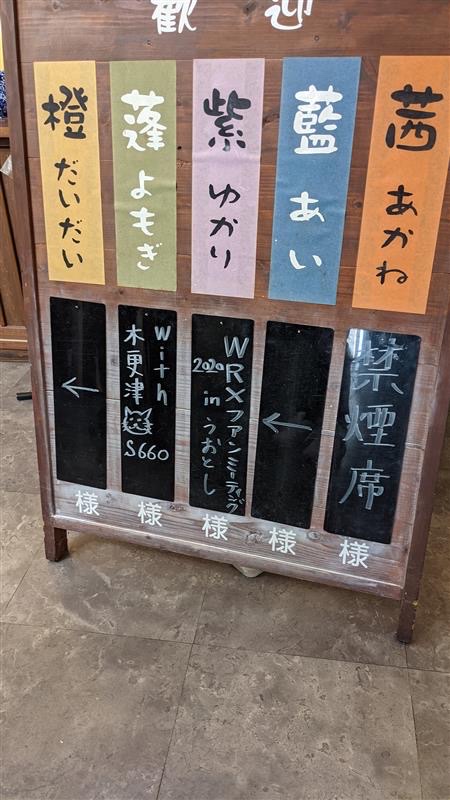 歓迎
茜 あかね
藍 あい
紫 ゆかり
蓬 よもぎ
橙 だいだい
禁煙席
様
←
様
WRXファンミーティング
2020 in うおとし
様
with
木更津 S660
様
←
様